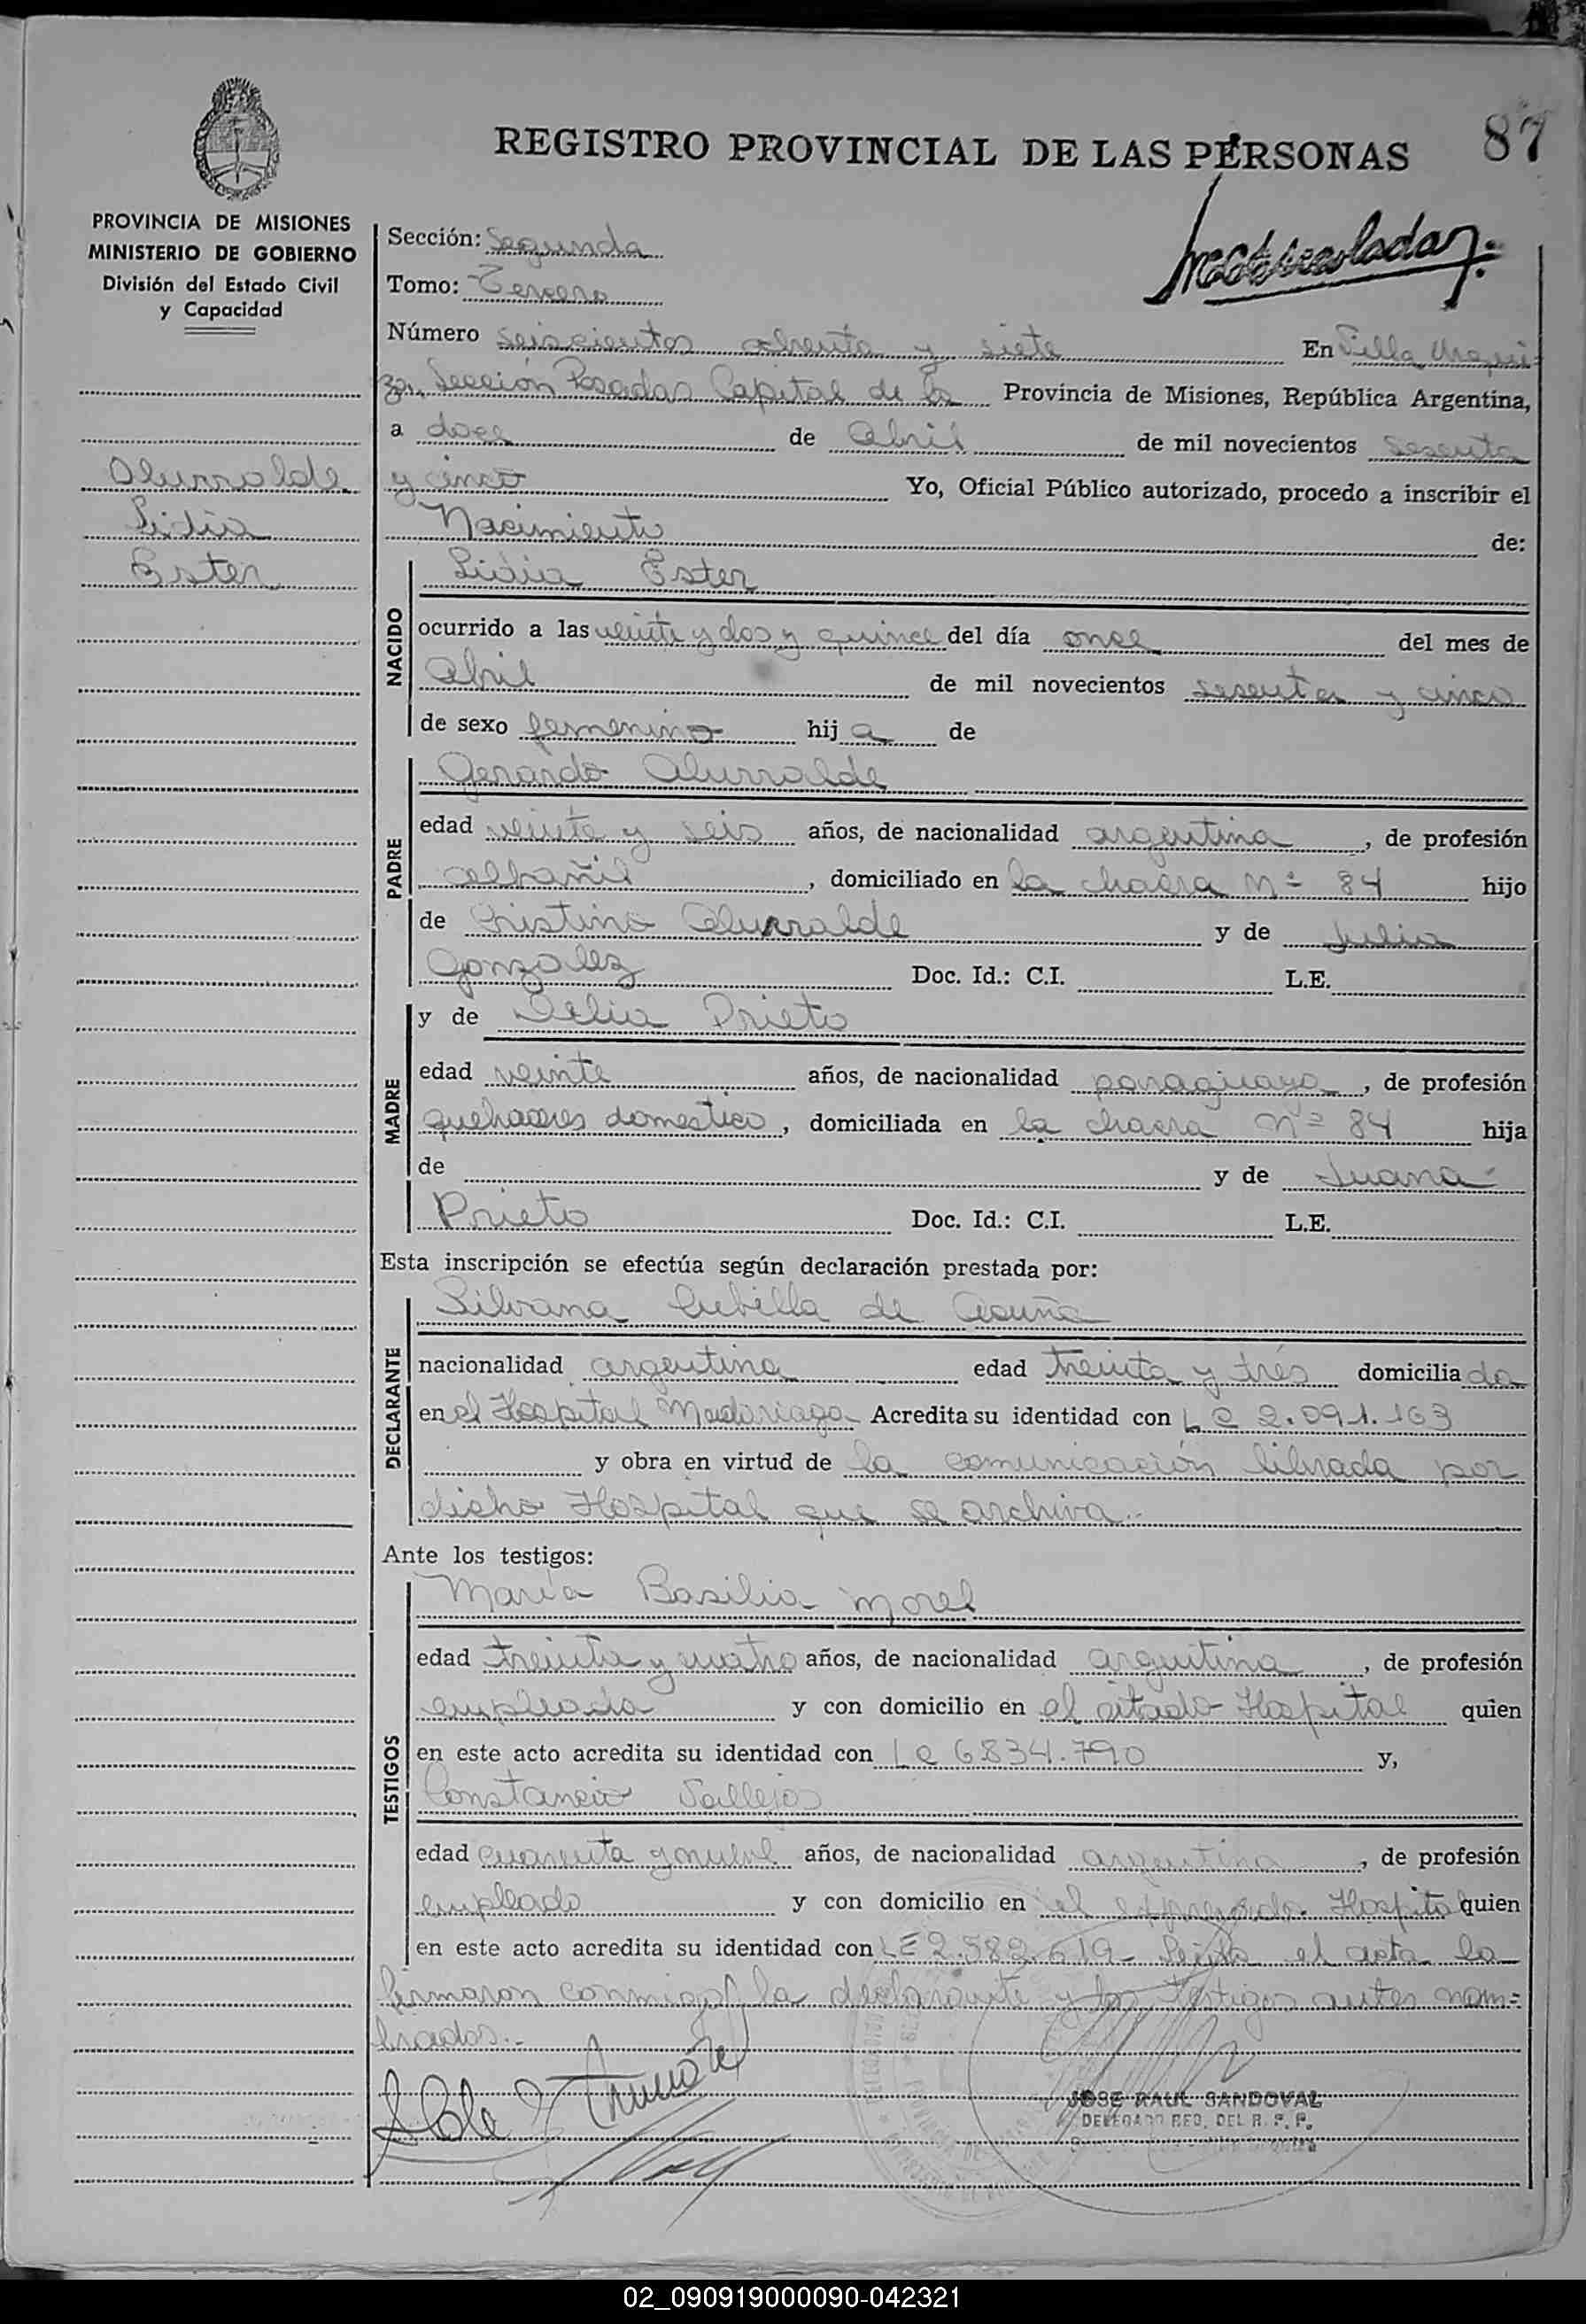 87
REGISTRO PROVINCIAL DE LAS PERSONAS
PROVINCIA DE MISIONES
MINISTERIO DE GOBIERNO
División del Estado Civil
y Capacidad
Matriculada
Sección: Segunda
Tomo: Tercero
Número seiscientos ochenta y siete En Villa Urqui=
za, Sección Posadas Capital de la Provincia de Misiones, República Argentina,
a doce de Abril de mil novecientos sesenta
Alurralde
Lidia
Ester
y cinco Yo, Oficial Público autorizado, procedo a inscribir el
Nacimiento de:
NACIDO
Lidia Ester
ocurrido a las veinte y dos y quince del día once del mes de
Abril de mil novecientos sesenta y cinco
de sexo femenino hij a de
PADRE
Gerardo Alurralde
edad veinte y seis años, de nacionalidad argentina, de profesión
albañil, domiciliado en la chacra Nº 84 hijo
de Cristino Alurralde y de Julia
Gonzalez Doc. Id.: C.I. L.E.
MADRE
y de Delia Prieto
edad veinte años, de nacionalidad paraguaya, de profesión
quehaceres domestico, domiciliada en la chacra Nº 84 hija
de y de Juana
Prieto Doc. Id.: C.I. L.E.
Esta inscripción se efectúa según declaración prestada por:
DECLARANTE
Silvana Cubilla de Acuña
nacionalidad argentina edad treinta y trés domicilia da
en el Hospital Madariaga Acredita su identidad con L C 2.091.163
y obra en virtud de la comunicación librada por
dicho Hospital que se archiva.-
Ante los testigos:
TESTIGOS
María Basilia Morel
edad treinta y cuatro años, de nacionalidad argentina, de profesión
empleada y con domicilio en el citado Hospital quien
en este acto acredita su identidad con L C 6834.790 y,
Constancio Vallejos
edad cuarenta y nueve años, de nacionalidad argentina, de profesión
empleado y con domicilio en el expresado Hospital quien
en este acto acredita su identidad con LE 2.582.619- Leída el acta la
firmaron conmigo la declarante y los testigos antes nom=
brados.-
JOSE RAUL SANDOVAL
DELEGADO REG. DEL R. P. P.
02_090919000090-042321